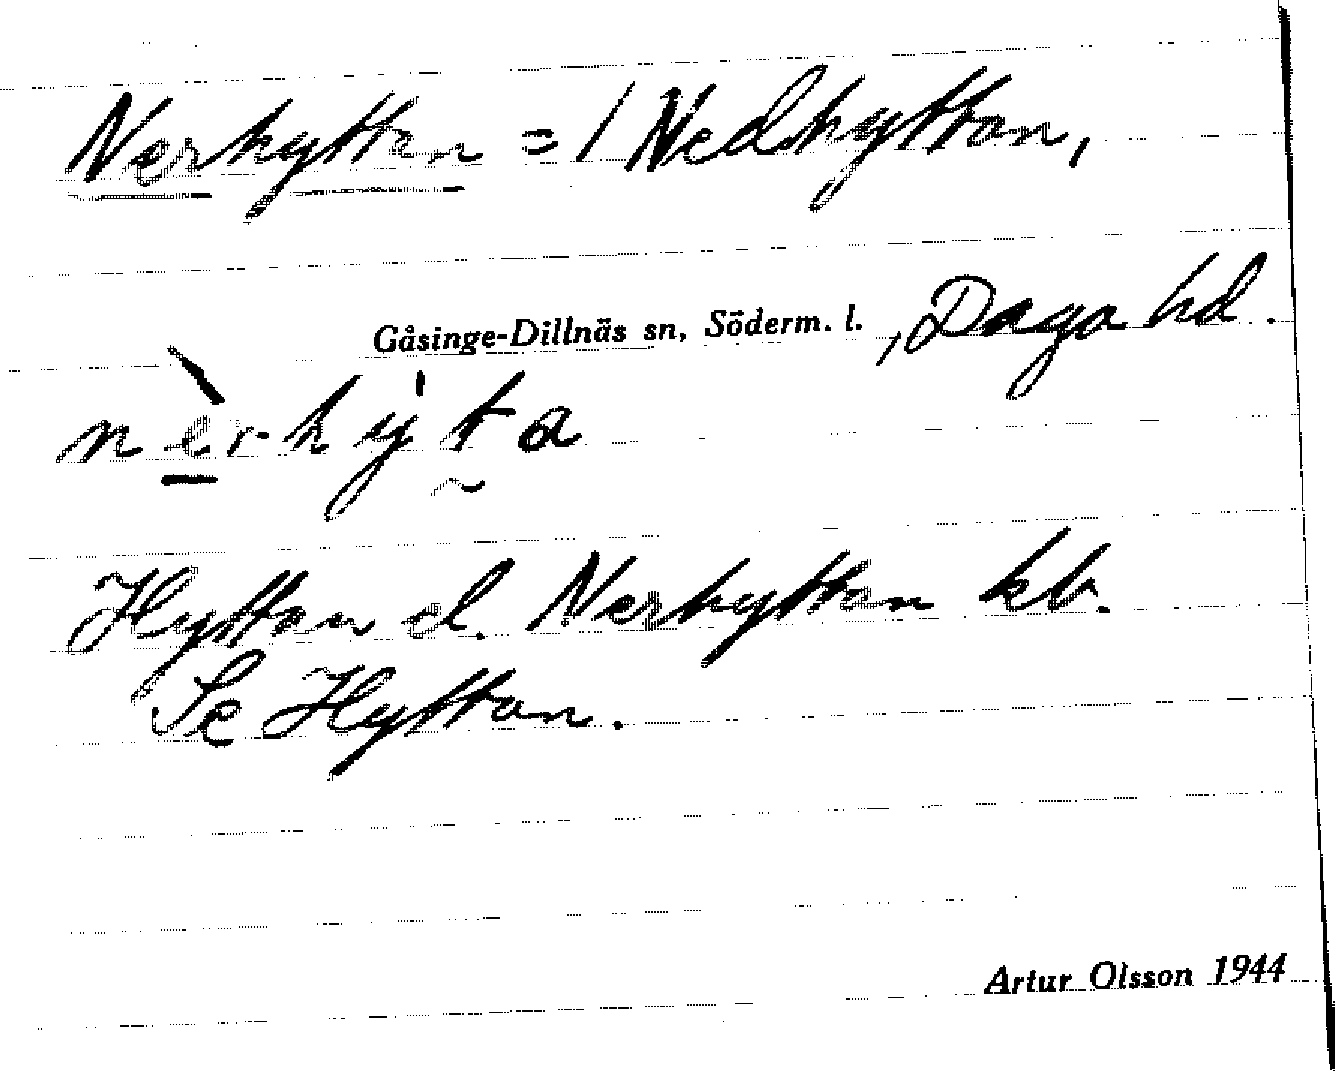 Nerhyttan = / Nedhyttan,
Gåsinge-Dillnäs sn, Söderm. l. , Daga hd.
nèrhy̍ta
Hyttan el. Nerhyttan kb.
Se Hyttan.
Artur Olsson 1944